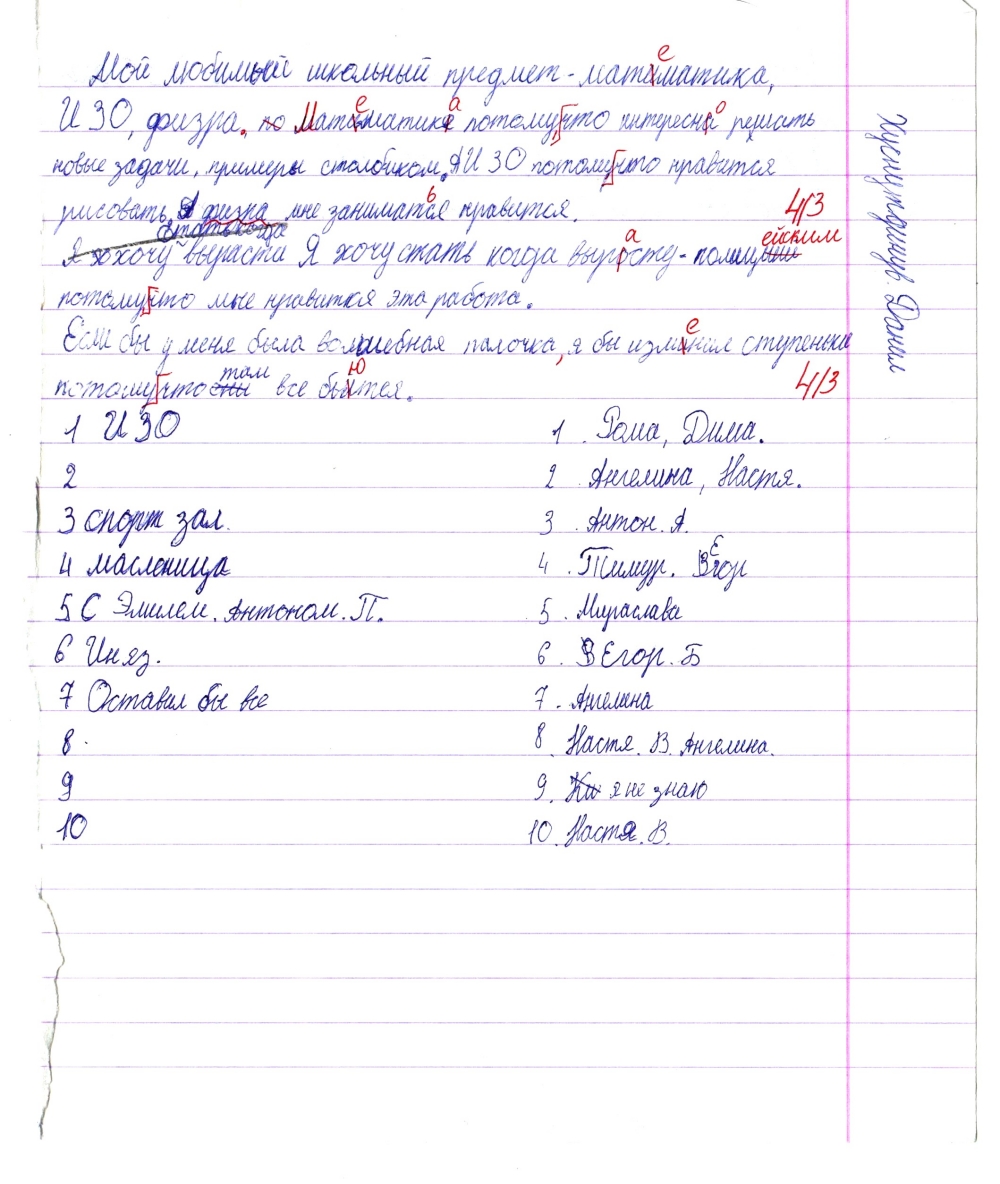 Мой любимый школьный предмет - математика,
ИЗО, физра. Математика потому, что интересно решать
новые задачи, примеры столбиком. А ИЗО потому что нравится
рисовать. А физра мне заниматься нравится. 4/3
Стать когда
Я хочу вырасти Я хочу стать когда вырасту - полицейским
потому, что мне нравиткя эта работа.
Если бы у меня была волшебная палочка, я бы изменил ступеньки
потому что там все бьются. 4/3
Хуснутдинув Данил
1 ИЗО
2
3 спорт зал.
4 масленица
5 С Эмилем. Антоном. П.
6 Иняз.
7 Оставил бы все
8.
9
10
1. Рома, Дима.
2 Ангелина, Настя.
3. Антон. А.
4. Тимур. Егор
5. Мираслава
6. Егор. Б
7. Ангелина
8. Настя. В. Ангелина.
9. я не знаю
10. Настя. В.